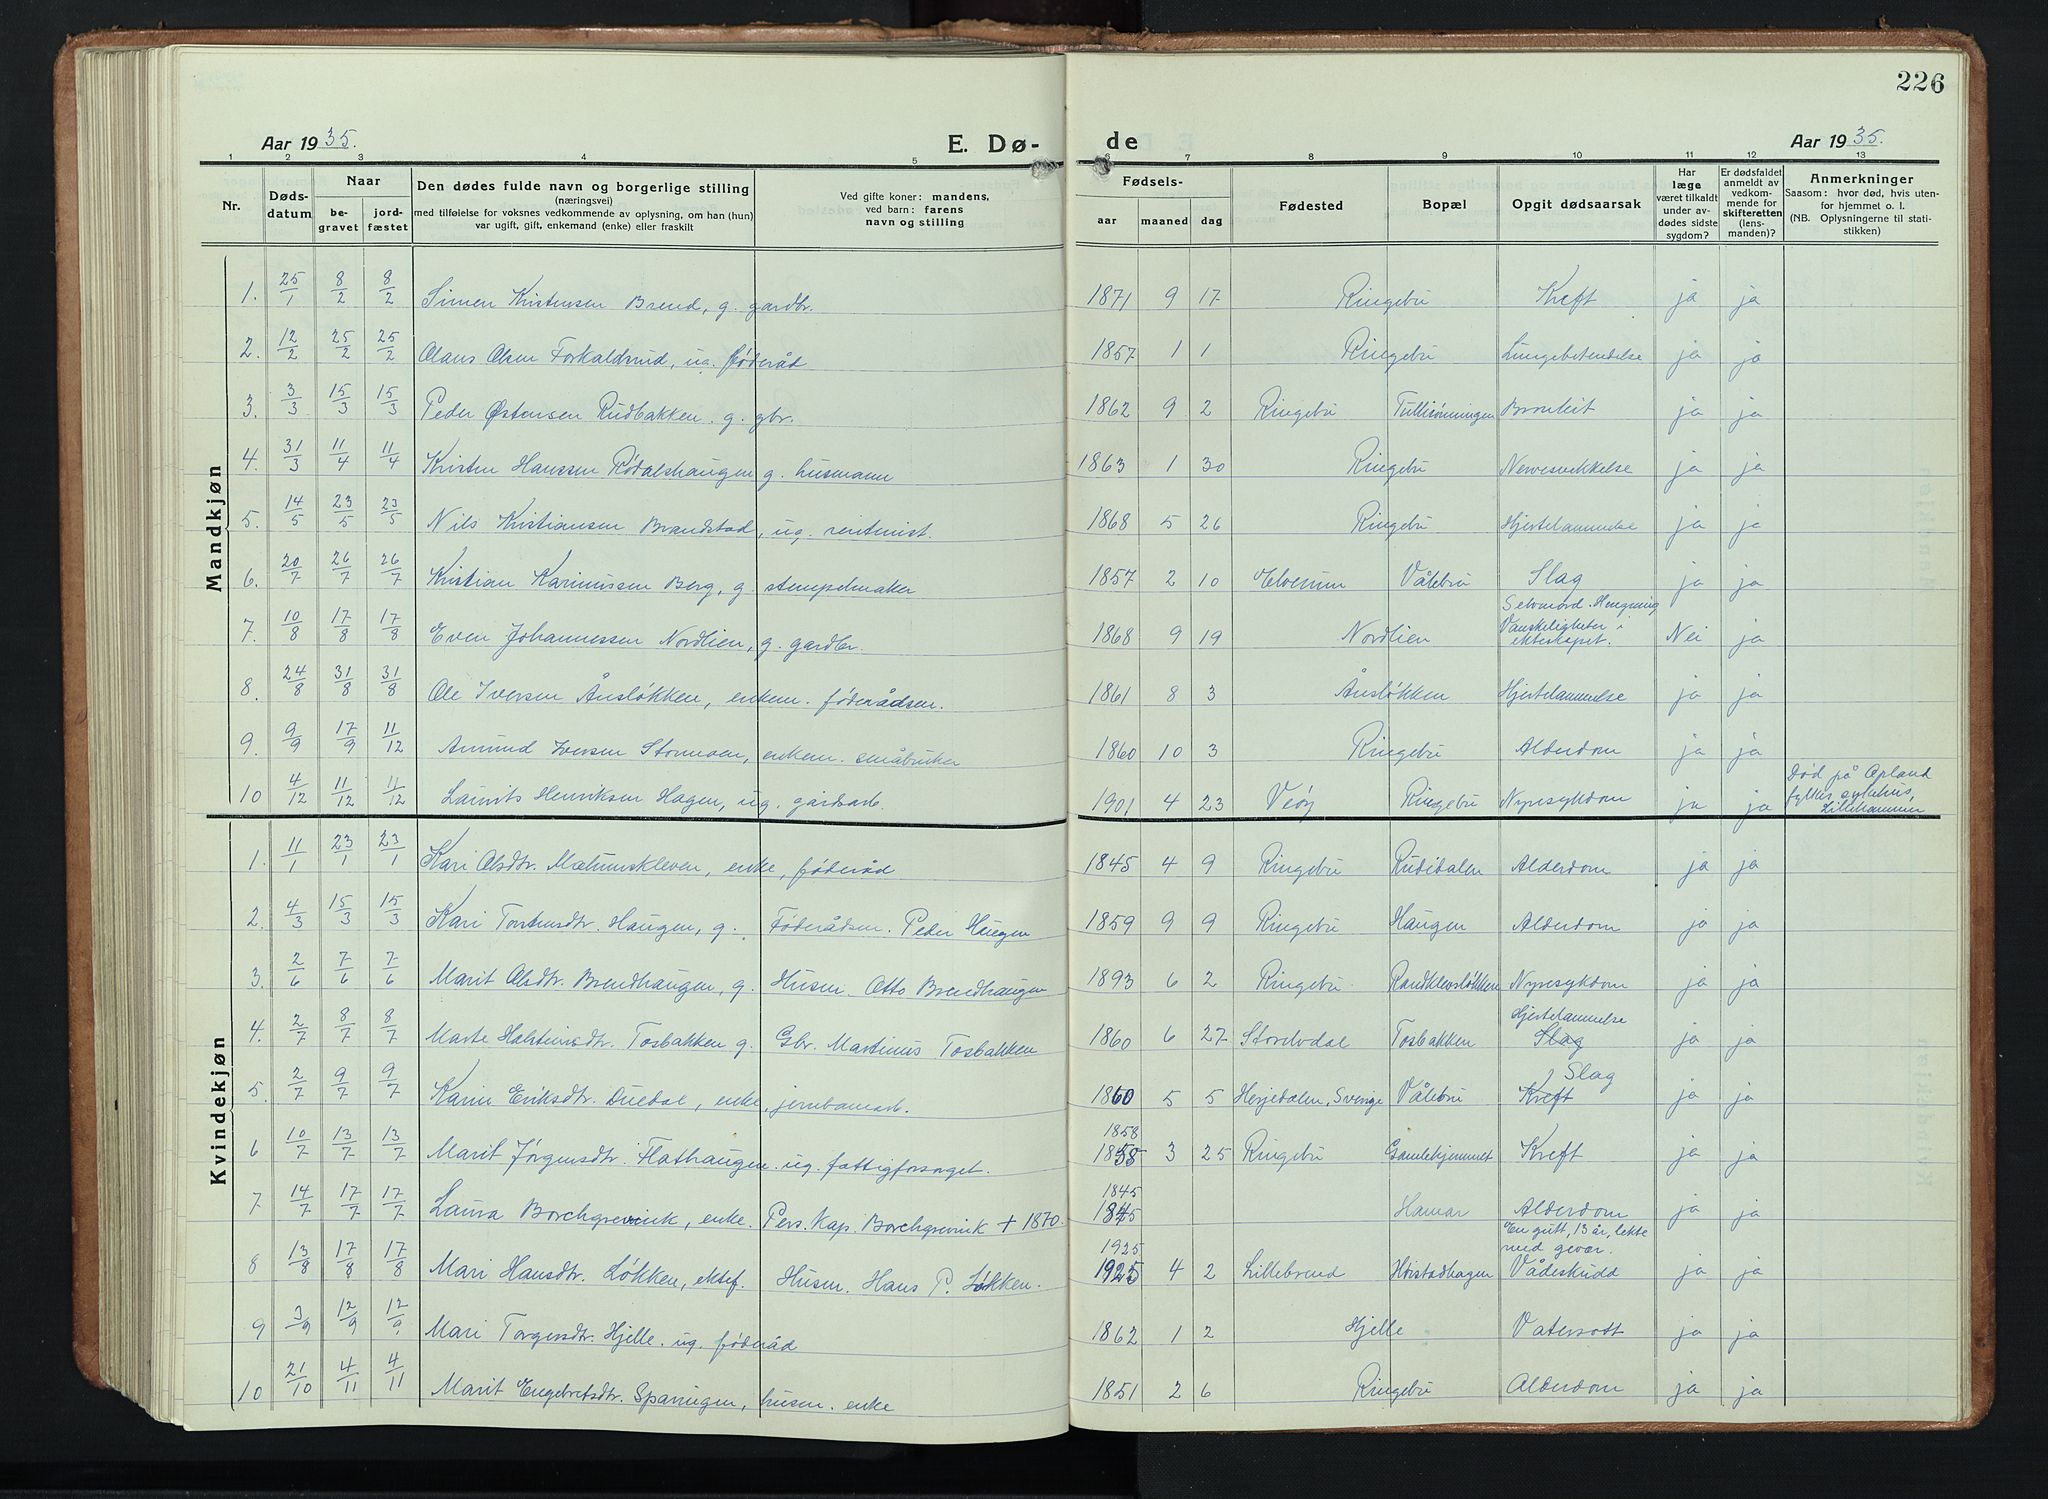 226
Aar 1935.
E. Dø-
de
Aar 1935.
1 2 3 4 5 6 7 8 9 10 11 12 13
Nr.
Døds-
datum
Naar
be-
gravet
jord-
fæstet
Den dødes fulde navn og borgerlige stilling
(næringsvei)
med tilføielse for voksnes vedkommende av oplysning, om han (hun)
var ugift, gift, enkemand (enke) eller fraskilt
Ved gifte koner: mandens,
ved barn: farens
navn og stilling
Fødsels-
aar maaned dag
Fødested
Bopæl
Opgit dødsaarsak
Har
læge
været tilkaldt
under av-
dødes sidste
sygdom?
Er dødsfaldet
anmeldt av
vedkom-
mende for
skifteretten
(lens-
manden)?
Anmerkninger
Saasom: hvor død, hvis uten-
for hjemmet o. l.
(NB. Oplysningerne til stati-
stikken)
Mandkjøn
1. 25/1 8/2 8/2 Simen Kristensen Brend, g. gardbr. 1871 9 17 Ringebu Kreft ja ja
2. 12/2 25/2 25/2 Olaus Olsen Forkaldsrud, ug. føderåd 1857 1 1 Ringebu Lungebetendelse ja ja
3. 3/3 15/3 15/3 Peder Østensen Rudbakken. g. gbr. 1862 9 2 Ringebu Bronkit ja ja
4. 31/3 11/4 11/4 Kristen Hanssen Rødalshaugen g. husmann 1863 1 30 Ringebu Nervesvekkelse ja ja
5. 14/5 23/5 23/5 Nils Kristiansen Brandstad, ug. rentenist. 1868 5 26 Ringebu Hjertelammelse ja ja
6. 20/7 26/7 26/7 Kristian Karinussen Berg, g. stempelmaker 1857 2 10 Elverum Vålebru Slag ja ja
7. 10/8 17/8 17/8 Even Johannessen Nordlien, g. gardbr. 1868 9 19 Nordlien Selvmord. Hengning
Vanskeligheter i
ekteskapet. Nei ja
8. 24/8 31/8 31/8 Ole Iversen Ånsløkken, enkem. føderådsm. 1861 8 3 Ånsløkken Hjertelammelse ja ja
9. 9/9 17/9 11/12 Amund Iversen Stormoen, enkem. småbruker 1860 10 3 Ringebu Alderdom ja ja
10 4/12 11/12 11/12 Laurits Henriksen Hagen, ug. gårdsarb. 1901 4 23 Veøy Ringebu Nyresykdom ja ja Død på Opland
fylkes sykehus,
Lillehammer
Kvindekjøn
1. 11/1 23/1 23/1 Kari Olsdtr. Mælumskleven, enke, føderåd 1845 4 9 Ringebu Rudidalen Alderdom ja ja
2. 4/3 15/3 15/3 Kari Torstensdtr. Haugen, g. Føderådsm. Peder Haugen 1859 9 9 Ringebu Haugen Alderdom ja ja
3. 2/6 7/6 7/6 Marit Olsdtr. Brendhaugen, g. Husm. Otto Brendhaugen 1893 6 2 Ringebu Randklevsløkken Nyresykdom ja ja
4. 2/7 8/7 8/7 Marte Halstensdtr. Tosbakken g. Gbr. Martinus Tosbakken 1860 6 27 Storelvdal Tosbakken Hjertelammelse
Slag ja ja
5. 2/7 9/7 9/7 Karin Eriksdtr. Duedal, enke, jernbanearb. 1860 5 5 Herjedalen, Sverige Vålebru Slag
Kreft ja ja
6 10/7 13/7 13/7 Marit Jørgensdtr. Flathaugen. ug. fattigforsørget. 1858
1858 3 25 Ringebu Gamlehjemmet Kreft ja ja
7 14/7 17/7 17/7 Laura Borchgrevink, enke. Pers. Kap. Borchgrevink + 1870. 1845
1845 Hamar Alderdom ja ja
8 13/8 17/8 17/8 Mari Hansdtr. Løkken, ektef. Husm. Hans P. Løkken. 1925
1925 4 2 Lillebrend En gutt, 13 år, lekte
med gevær.
Vådeskudd ja ja
9 3/9 12/9 12/9 Mari Torgersdtr. Hjelle. ug. føderåd 1862 1 2 Hjelle Vatersott ja ja
10 21/10 4/11 4/11 Marit Engebretsdtr. husm. enke 1851 2 6 Ringebu Alderdom ja ja